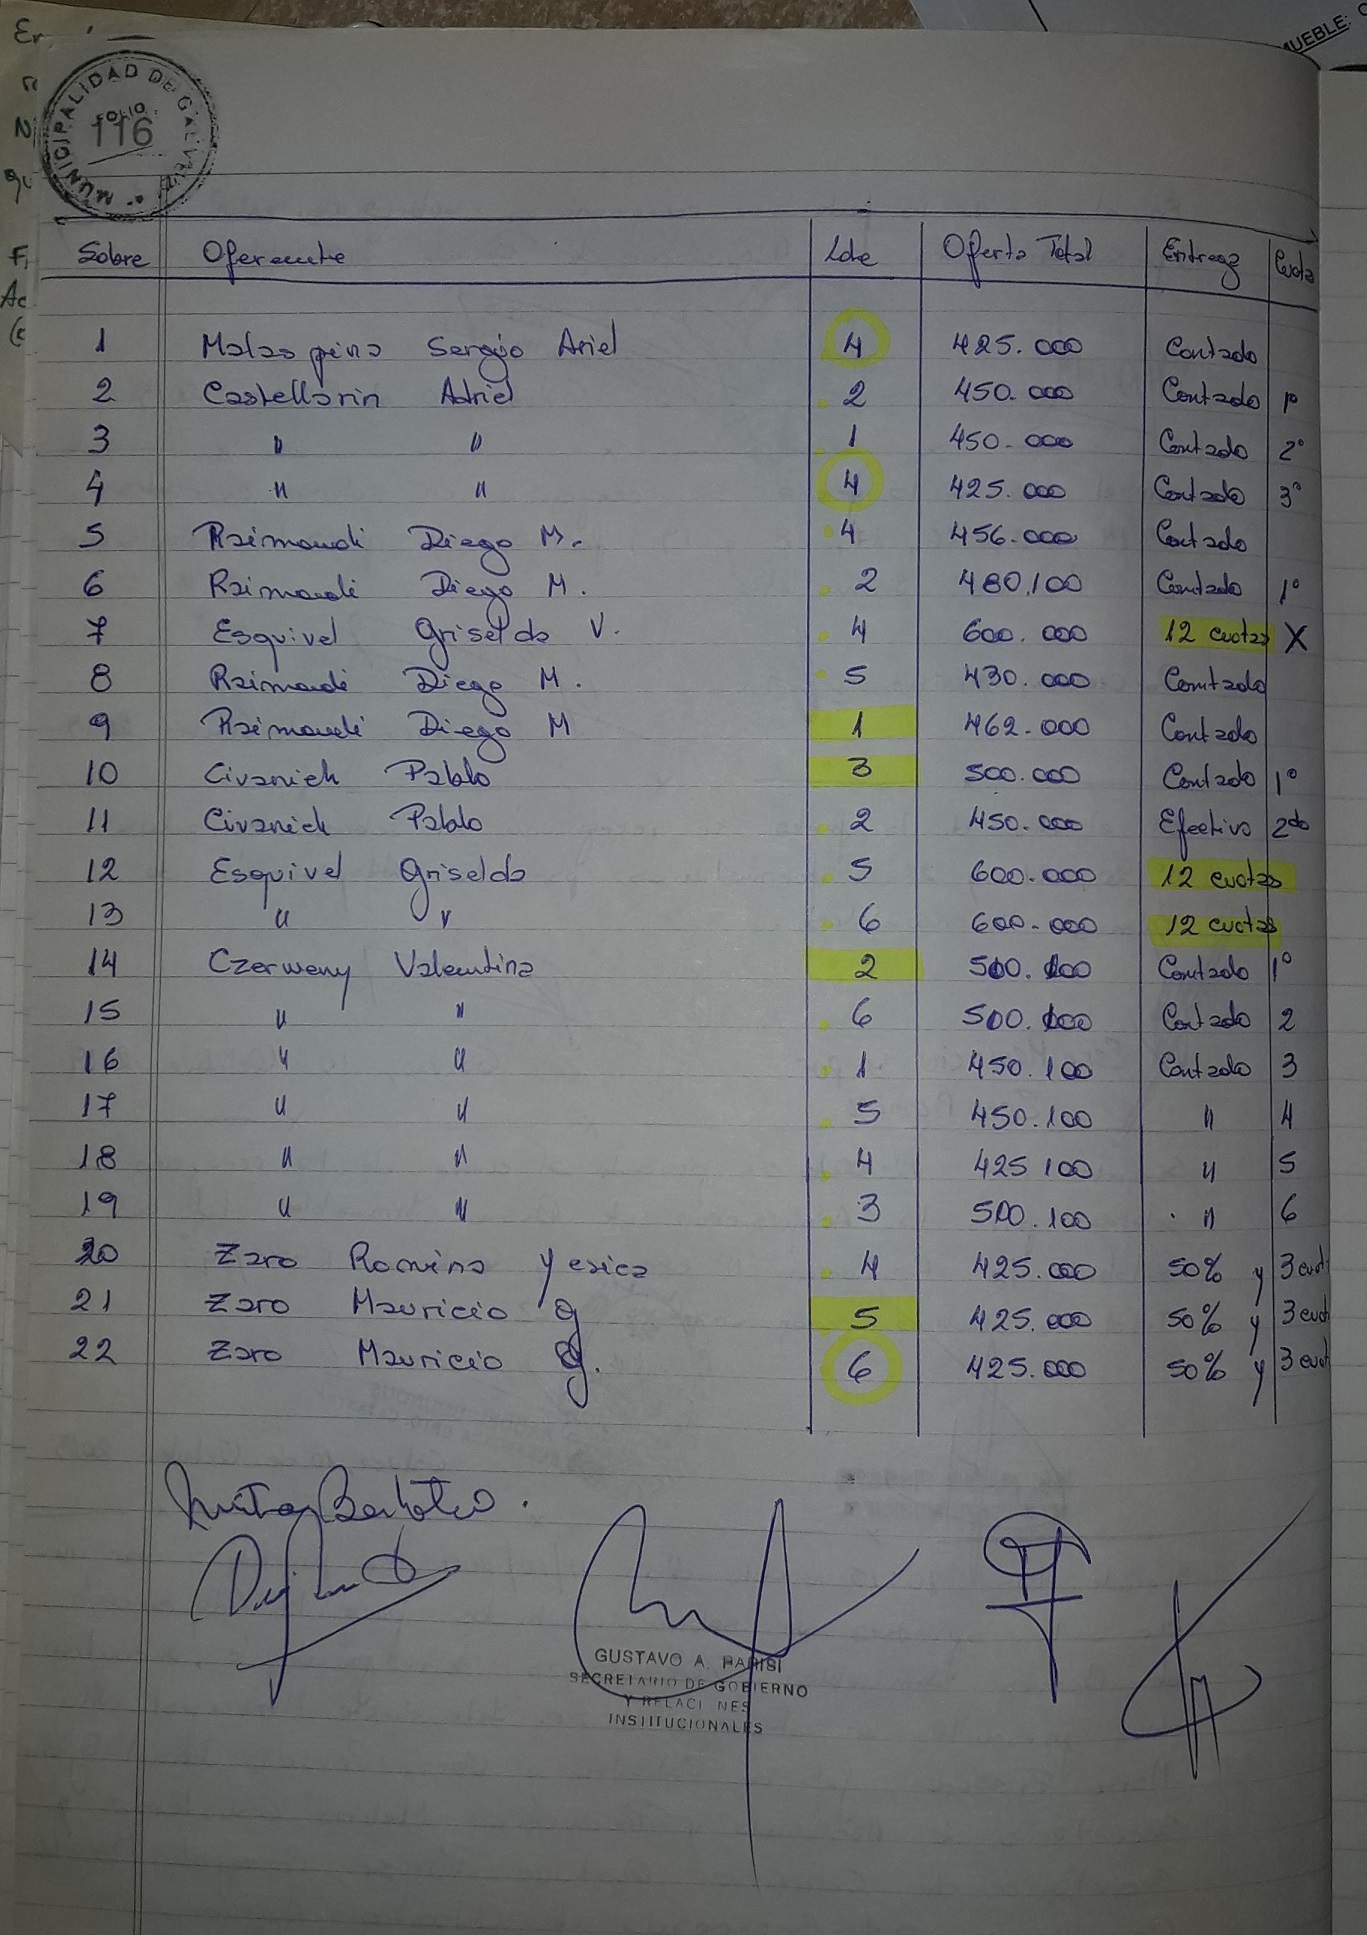 MUEBLE:
MUNICIPALIDAD DE GALVEZ
FOLIO
116
Sobre Oferente Lote Oferta Total Entrega Cuota
1 Malaspina Sergio Ariel 4 425.000 Contado
2 Castellarin Adriel 2 450.000 Contado 1º
3 " " 1 450.000 Contado 2º
4 " " 4 425.000 Contado 3º
5 Raimondi Diego M. 4 456.000 Contado
6 Raimondi Diego M. 2 480.100 Contado 1º
7 Esquivel Griselda V. 4 600.000 12 cuotas X
8 Raimondi Diego M. 5 430.000 Contado
9 Raimondi Diego M 1 462.000 Contado
10 Civanich Pablo 3 500.000 Contado 1º
11 Civanich Pablo 2 450.000 Efectivo 2do
12 Esquivel Griselda 5 600.000 12 cuotas
13 " " 6 600.000 12 cuotas
14 Czerweny Valentina 2 500.100 Contado 1º
15 " " 6 500.100 Contado 2
16 " " 1 450.100 Contado 3
17 " " 5 450.100 " 4
18 " " 4 425 100 " 5
19 " " 3 500.100 " 6
20 Zaro Romina Yesica 4 425.000 50% y 3 cuot
21 Zaro Mauricio G 5 425.000 50% y 3 cuot
22 Zaro Mauricio G. 6 425.000 50% y 3 cuot
GUSTAVO A. PARISI
SECRETARIO DE GOBIERNO
Y RELACI NES
INSTITUCIONALES